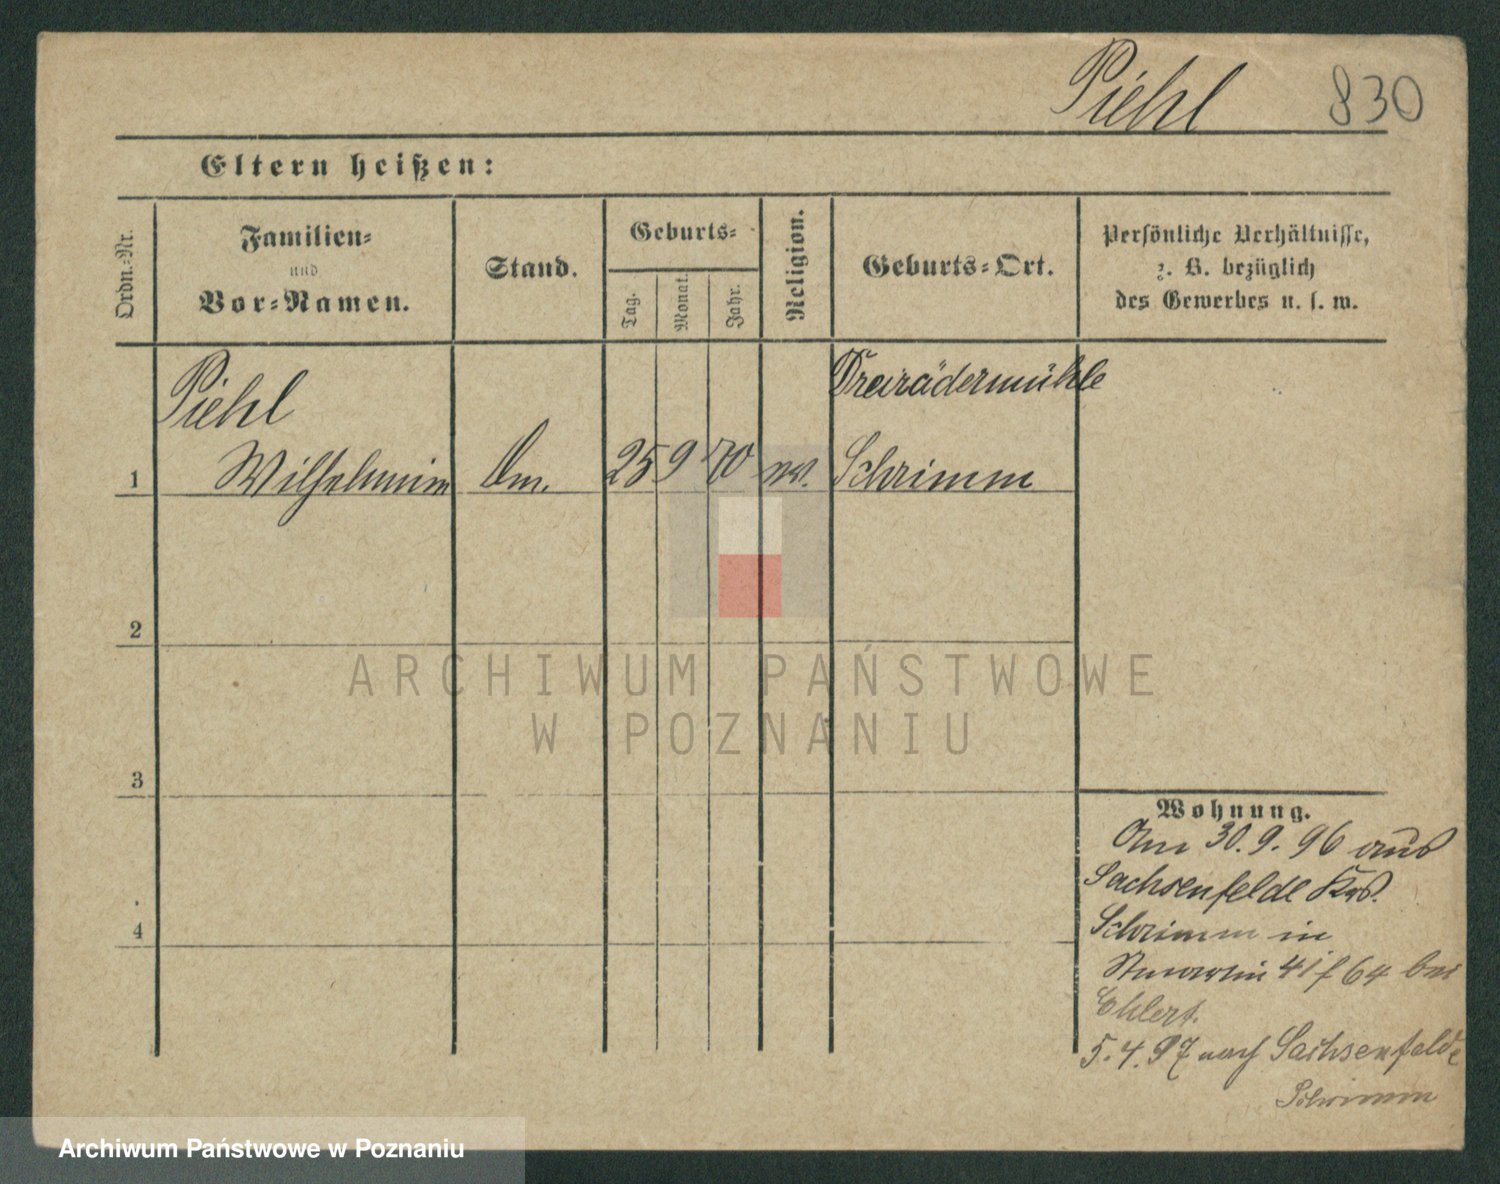 Piehl 830
Eltern heißen:
Ordn.-Nr.
Familien-
und
Vor-Namen.
Stand.
Geburts-
Tag.
Monat.
Jahr.
Religion.
Geburts-Ort.
Persönliche Verhältnisse,
z. B. bezüglich
des Gewerbes u. s. w.
Piehl
Dreirädermühle
1 Wilhelmine 25 9 70 ev. Schrimm
2
ARCHIWUM PAŃSTWOWE
W POZNANIU
3
Wohnung.
Am 30. 9. 96 aus
Sachsenfelde Krs.
4
Schrimm in
Stmartin 64 bei
Ehlert.
5. 4. 97 nach Sachsenfelde
Schrimm
Archiwum Państwowe w Poznaniu